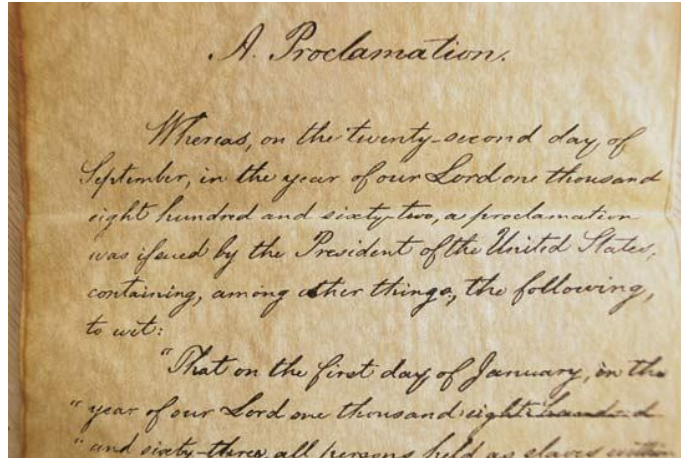 A Proclamation.
Whereas, on the twenty-second day of
September, in the year of our Lord one thousand
eight hundred and sixty-two, a proclamation
was issued by the President of the United States,
containing, among other things, the following,
to wit:
"That on the first day of January, in the
"year of our Lord one thousand eight hundred
"and sixty-three, all persons held as slaves within